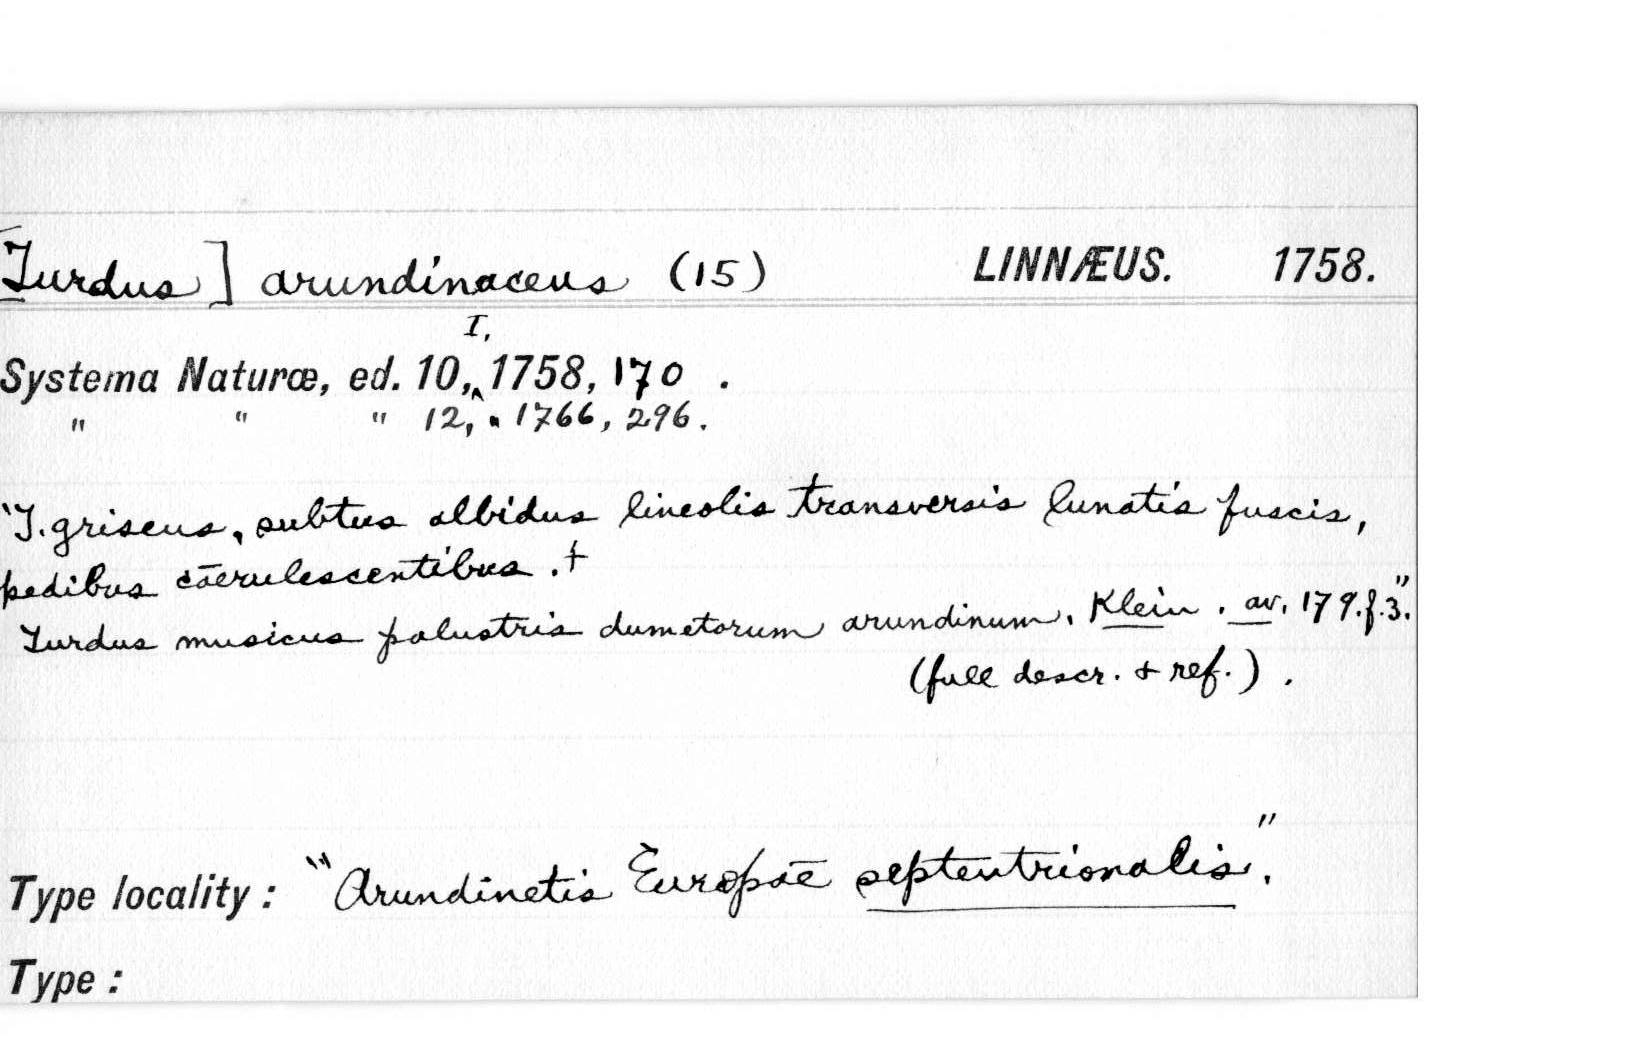 [Turdus] arundinaceus (15) LINNÆUS. 1758.
I,
Systema Naturæ, ed. 10,^ 1758, 170 .
" " " 12, " 1766, 296.
"T. griseus, subtus albidus lineolis transversis lunatis fuscis,
pedibus cœrulescentibus. †
Turdus musicus palustris dumetorum arundinum. Klein. av. 179. f. 3."
(full descr. & ref.) .
Type locality: "Arundinetis Europæ septentrionalis."
Type: